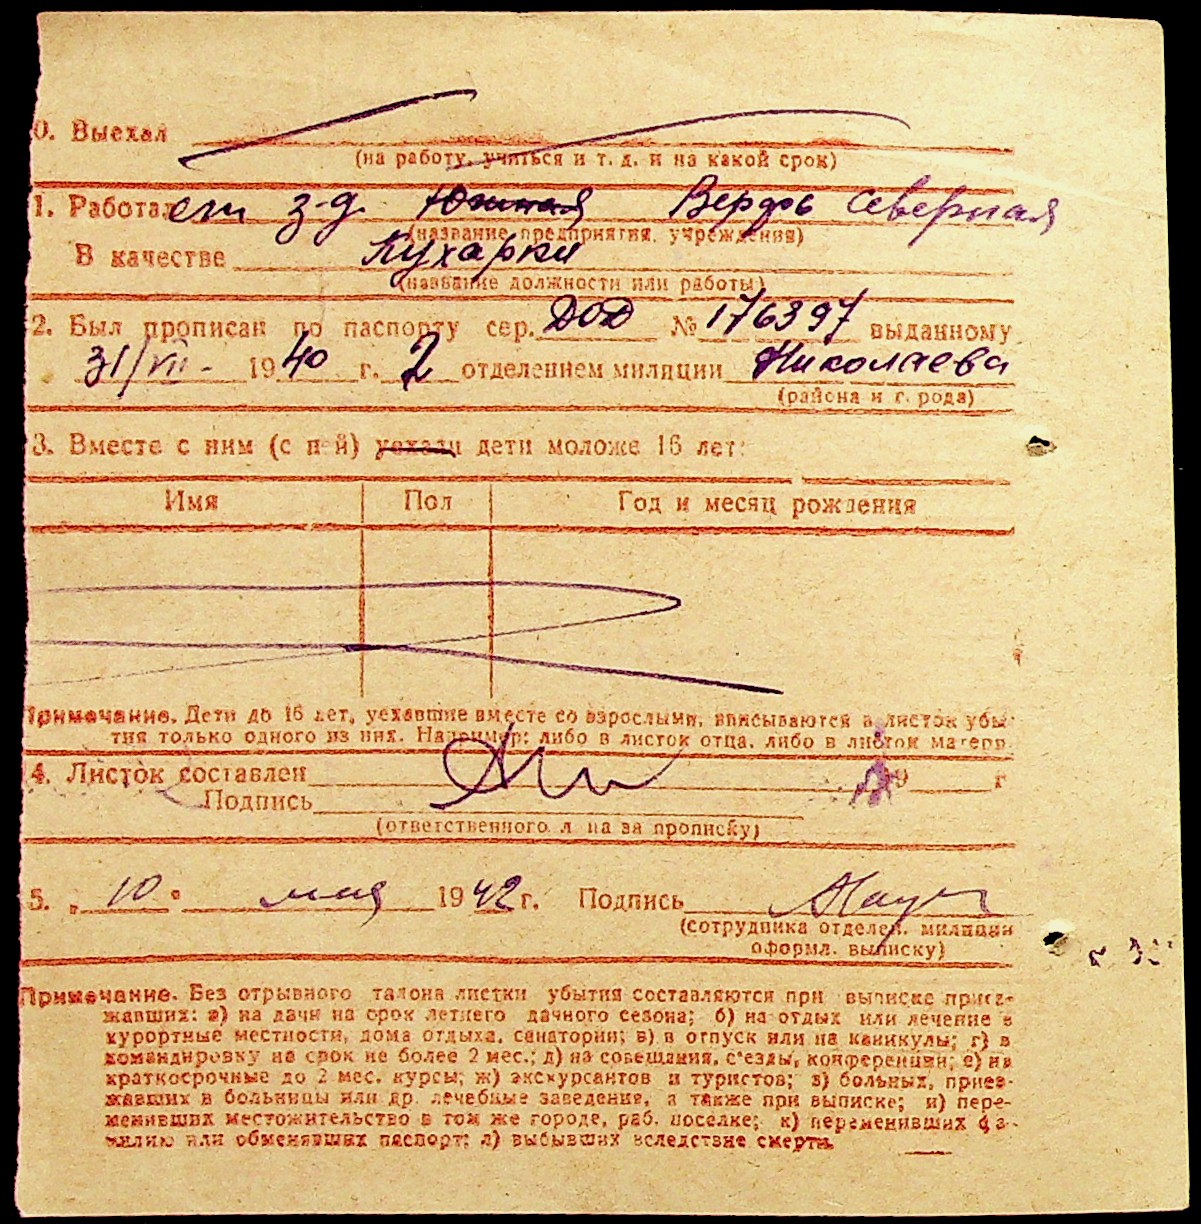 0. Выехал
(на работу, учиться и т. д. и на какой срок)
1. Работал з-д. Южная Верфь северная
(название предприятия, учреждения)
В качестве Кухарки
(название должности или работы)
2. Был прописан по паспорту сер. ДОД № 176397 выданному
31/VII- 1940 г. 2 отделением милиции Николаева
(района и г. рода)
3. Вместе с ним (с ней) уехали дети моложе 16 лет:
Имя Пол Год и месяц рождения
Примечание. Дети до 16 лет, уехавшие вместе со взрослыми, вписываются в листок убы-
тия только одного из них. Например: либо в листок отца, либо в листок матери.
4. Листок составлен 19 г
Подпись
(ответственного л на за прописку)
5. „ 10 " мая 1942 г. Подпись
(сотрудника отделен. милиции
оформл. выписку)
Примечание. Без отрывного талона листки убытия составляются при выписке приез-
жавших: а) на дачи на срок летнего дачного сезона; б) на отдых или лечение в
курортные местности, дома отдыха, санатории; в) в отпуск или на каникулы; г) в
командировку на срок не более 2 мес.; д) на совещания, с'езды, конференции; е) на
краткосрочные до 2 мес. курсы; ж) экскурсантов и туристов; з) больных, приез-
жавших в больницы или др. лечебные заведения, а также при выписке; и) пере-
менивших местожительство в том же городе, раб. поселке; к) переменивших фа-
милию или обменявших паспорт; л) выбывших вследствие смерти.